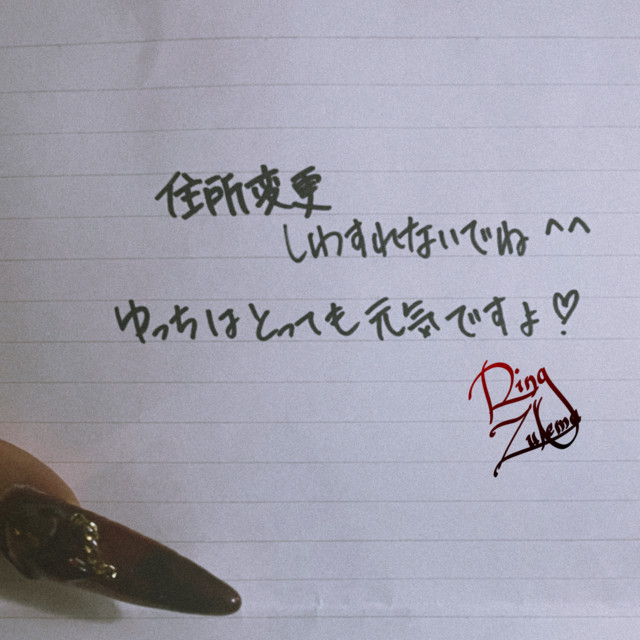 住所変更
しわすれないでね ^^
ゆっちはとっても元気ですよ♡
Ring
Zulema